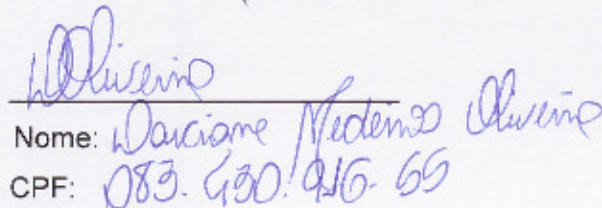 DOliveira
Nome: Darciane Medeiros Oliveira
CPF: 083.430.916-65